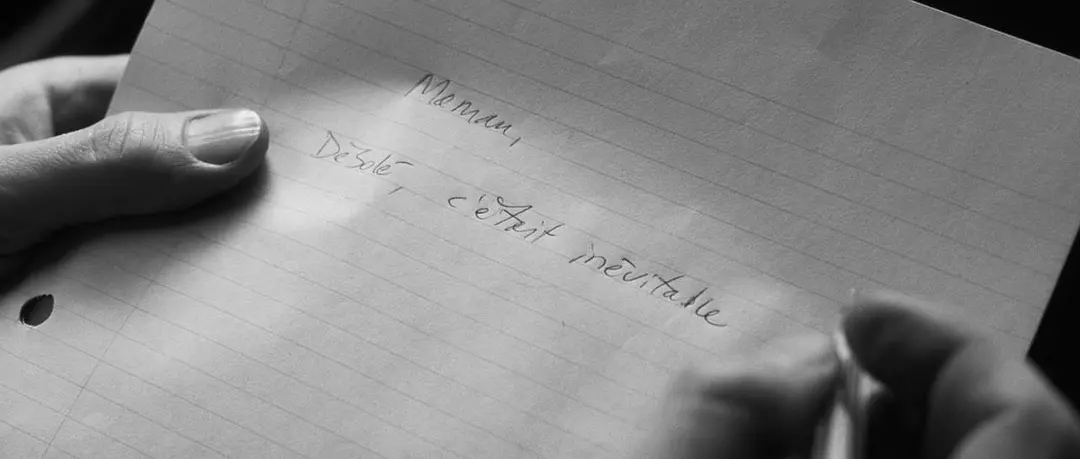 Maman,
Désolé, c'était inévitable